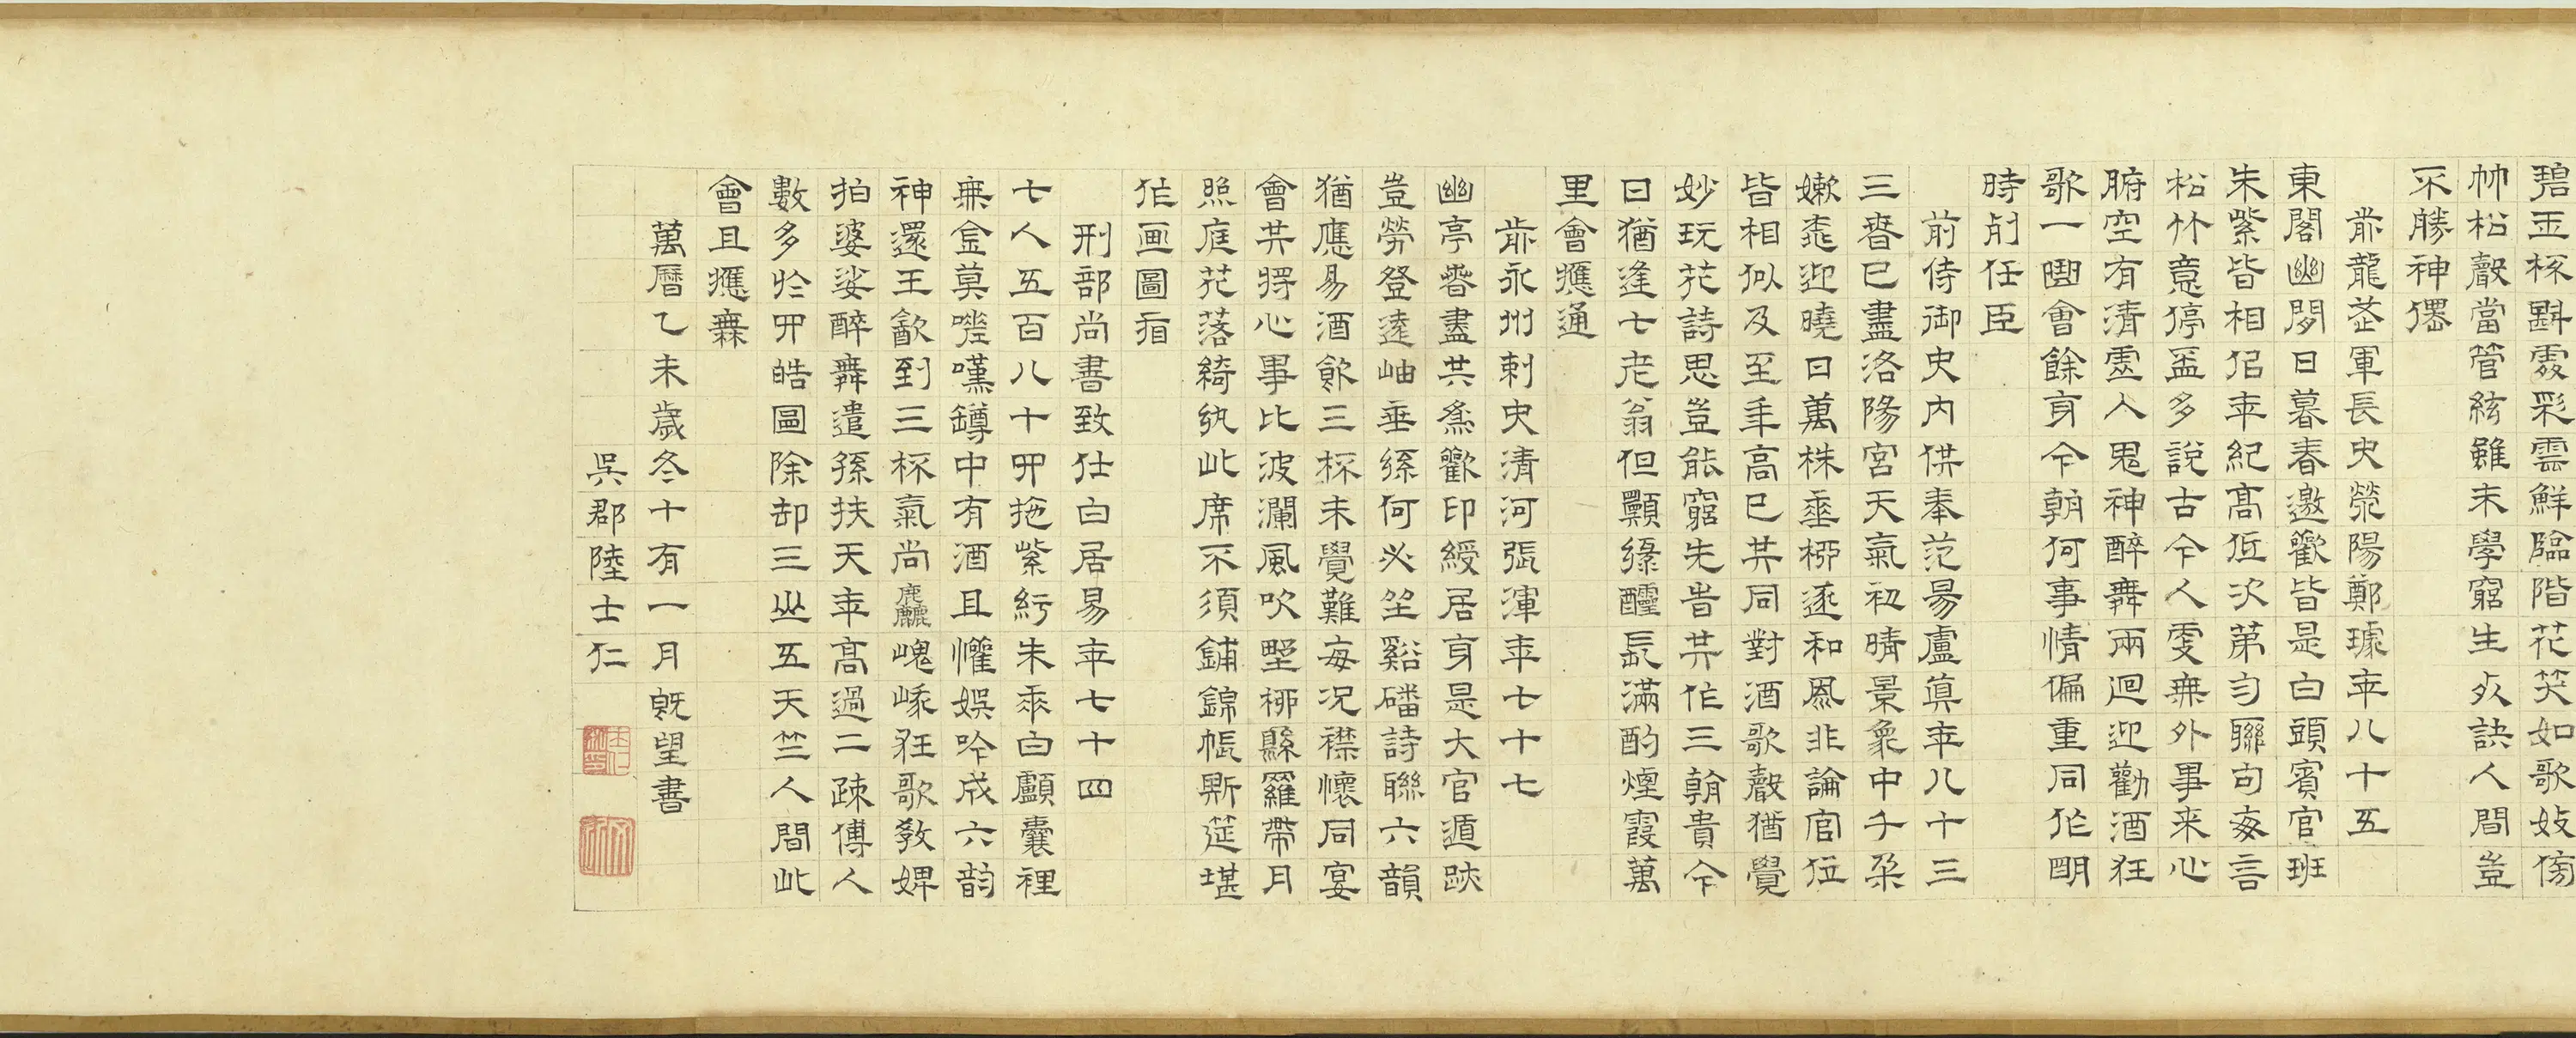 碧玉杯斟霞彩雲鮮臨階花笑如歌妓傍
竹松聲當管絃雖未學窮生死訣人間豈
不勝神僊
前龍武軍長史滎陽鄭璩年八十五
東閣幽閒日暮春邀歡皆是白頭賓官班
朱紫皆相侶年紀高低次第勻聯句每言
松竹意停盃多說古今人更無外事来心
腑空有清虛入鬼神醉舞兩迴迎勸酒狂
歌一曲會餘身今朝何事情偏重同作朙
時剐任臣
前侍御史内供奉范陽盧真年八十三
三春已盡洛陽宮天氣初晴景象中千朶
嫩桃迎曉日萬株垂桺逐和風非論官位
皆相似及至年高已共同對酒歌聲猶覺
妙玩花詩思豈能窮先告共作三朝貴今
日猶逢七老翁但願綠醽長滿酌煙霞萬
里會應通
前永州刺史清河張渾年七十七
幽亭春盡共為歡印綬居身是大官遁跡
豈勞登遠岫垂絲何必坐谿磻詩聯六韻
猶應易酒飲三杯未覺難每況襟懷同宴
會共將心事比波瀾風吹野桺縣羅帶月
照庭花落綺紈此席不須鋪錦帳斯筵堪
作画圖看
刑部尚書致仕白居易年七十四
七人五百八十四拖紫紆朱垂白鬚囊裡
無金莫嗟嘆罇中有酒且懽娛吟成六韵
神還王歙到三杯氣尚麤嵬峩狂歌教婢
拍婆娑醉舞遣孫扶天年高過二疎傅人
數多於四皓圖除却三山五天竺人間此
會且應無
萬曆乙未歲冬十有一月旣望書
吳郡陸士仁